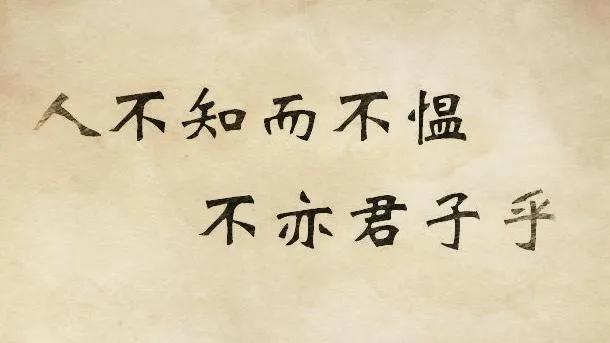 人不知而不愠
不亦君子乎